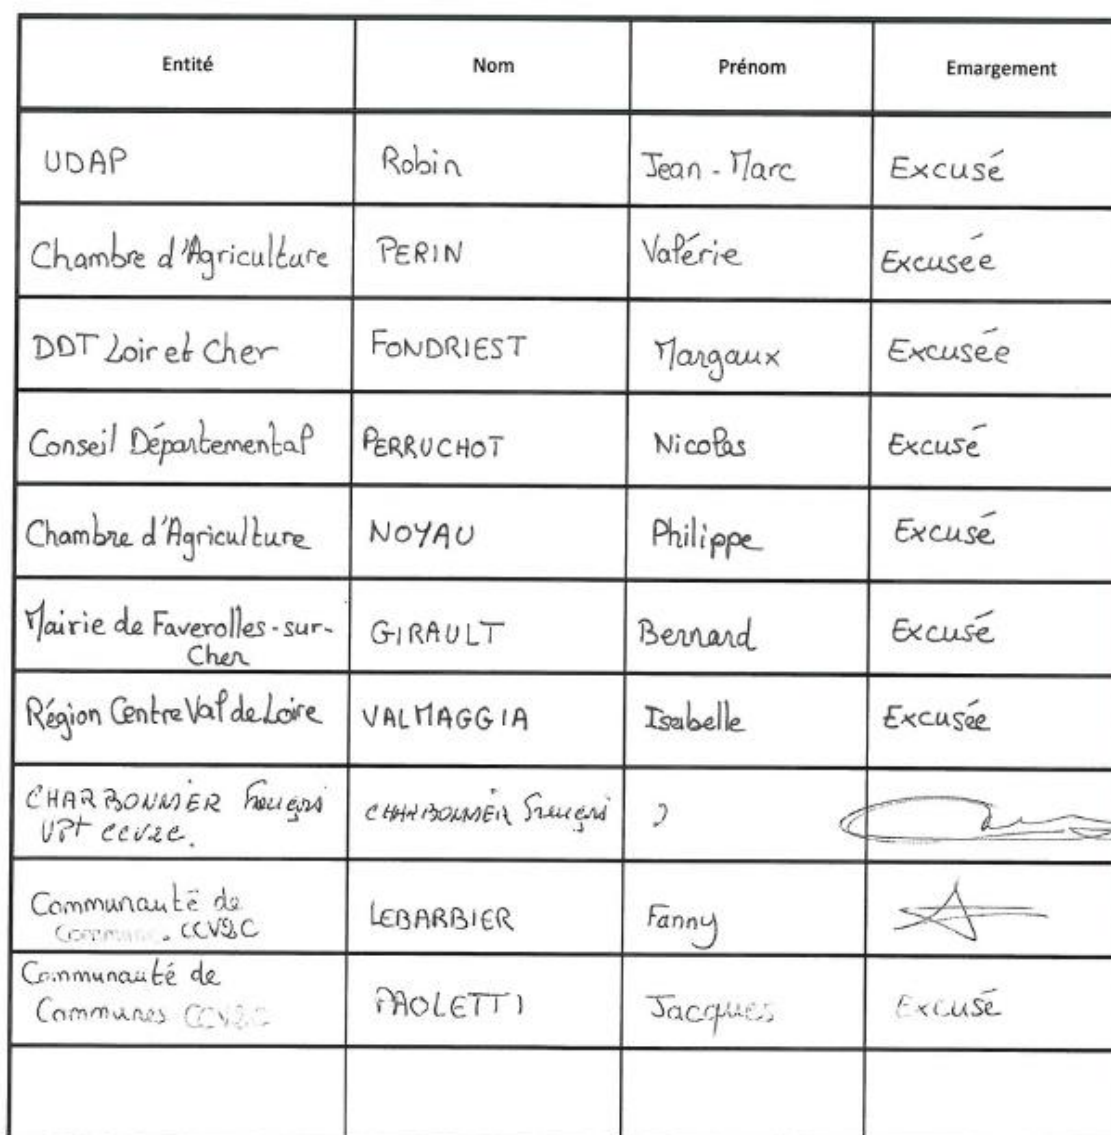 Entité Nom Prénom Emargement
UDAP Robin Jean-Marc Excusé
Chambre d'Agriculture PERIN Valérie Excusée
DDT Loir et Cher FONDRIEST Margaux Excusée
Conseil Départemental PERRUCHOT Nicolas Excusé
Chambre d'Agriculture NOYAU Philippe Excusé
Mairie de Faverolles-sur-
Cher GIRAULT Bernard Excusé
Région Centre Val de Loire VALMAGGIA Isabelle Excusée
CHARBONNIER François CHARBONNIER François
VPt CCV2C.
Communauté de
Commune. CCV2C LEBARBIER Fanny
Communauté de
Communes CCV2C PAOLETTI Jacques Excusé